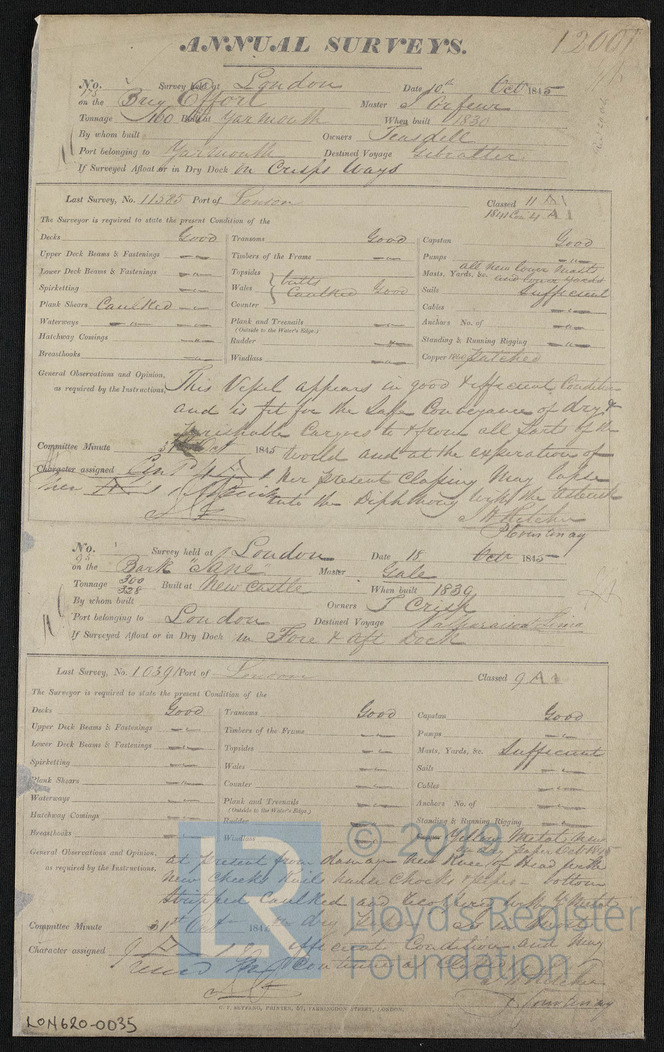 12007
ANNUAL SURVEYS.
No. Survey held at London Date 10th Oct 1845
on the Brig Effort Master
Tonnage 160 Built at Yarmouth When built 1830
By whom built Owners Teasdell
Port belonging to Yarmouth Destined Voyage Gibralter
If Surveyed Afloat or in Dry Dock on Crisps Ways
Last Survey, No. 11285 Port of London Classed 11 A1
The Surveyor is required to state the present Condition of the
Decks Good Transoms Good Capstan Good
Upper Deck Beams & Fastenings Timbers of the Frame Pumps
Lower Deck Beams & Fastenings Topsides Masts, Yards, &c. all new lower masts and lower yards
Spirketting Wales butts Caulked Good Sails Sufficient
Plank Shears Caulked Counter Cables
Waterways Plank and Treenails Anchors No. of
(Outside to the Water's Edge.)
Hatchway Comings Rudder Standing & Running Rigging
Breasthooks Windlass Copper Patched
General Observations and Opinion, This Vessel appears in good & efficient Condition
as required by the Instructions, and is fit for the Safe Conveyance of dry &
perishable Cargoes to & from all Parts of the
Committee Minute 31 Oct 1845 World and at the expiration of
Character assigned her present Classing may lapse
into the Diphthong with the asterisk
Courtenay
No. Survey held at London Date 18 Octr 1845
on the Bark Jane Master Gale
Tonnage 300 328 Built at New Castle When built 1839
By whom built Owners T Crisp
Port belonging to London Destined Voyage Valparaiso & Lima
If Surveyed Afloat or in Dry Dock in Fore & Aft Dock
Last Survey, No. 10391 Port of London Classed 9 A1
The Surveyor is required to state the present Condition of the
Decks Good Transoms Good Capstan Good
Upper Deck Beams & Fastenings Timbers of the Frame Pumps
Lower Deck Beams & Fastenings Topsides Masts, Yards, &c. Sufficient
Spirketting Wales Sails
Plank Shears Counter Cables
Waterways Plank and Treenails Anchors No. of
(Outside to the Water's Edge.)
Hatchway Comings Rudder Standing & Running Rigging
Breasthooks Windlass Yellow Metal New
General Observations and Opinion, at present from damage New Knee of Head with
as required by the Instructions, New Cheeks Rails bottom
Stripped Caulked and
Committee Minute 31st Oct 184
Character assigned efficient Condition and may
Continue as
Courtenay
C. F. SEYFANG, PRINTER, 57, FARRINGDON STREET, LONDON.
LON620-0035
LR © 2019
Lloyd's Register
Foundation